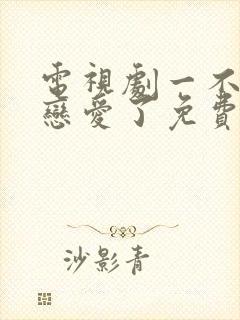 電視劇一不
戀愛了免費
沙影青